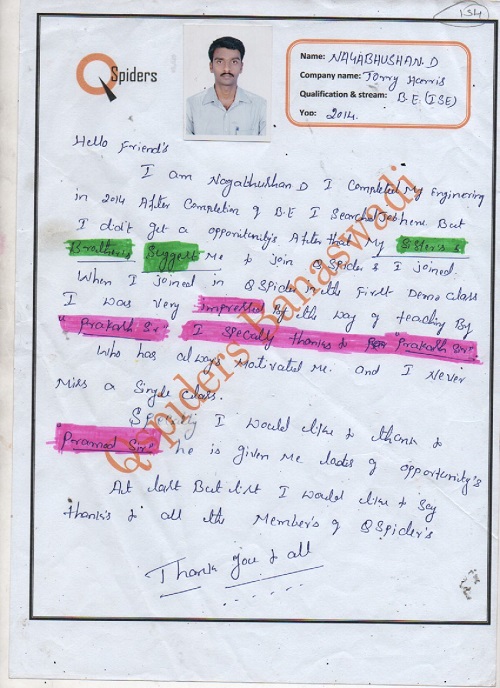 134
QSpiders
Name: NAGABHUSHAN.D
Company name: Torry Harris
Qualification & stream: B.E (ISE)
Yop: 2014.
Hello Friend's
I am Nagabhushan D I Completed My Enginering
in 2014 After Completion of B.E I Searched Job here But
I didn't get a opporitunity's After that My Sister's &
Brother's Suggest Me to join QSpider's I joined.
When I joined in QSpider in the First Demo class
I was very impressed By the way of teaching By
"Prakash Sir" I Specally thanks to "Prakash Sir"
Who has always Motivated Me. and I Never
Miss a Single class.
Specaly I Would like to thank to
"Pramod Sir" he is given Me lodes of opportunity's
At last But list I would like to Say
thank's to all the Member's of QSpider's
Thank you to all
Qspiders Banaswadi